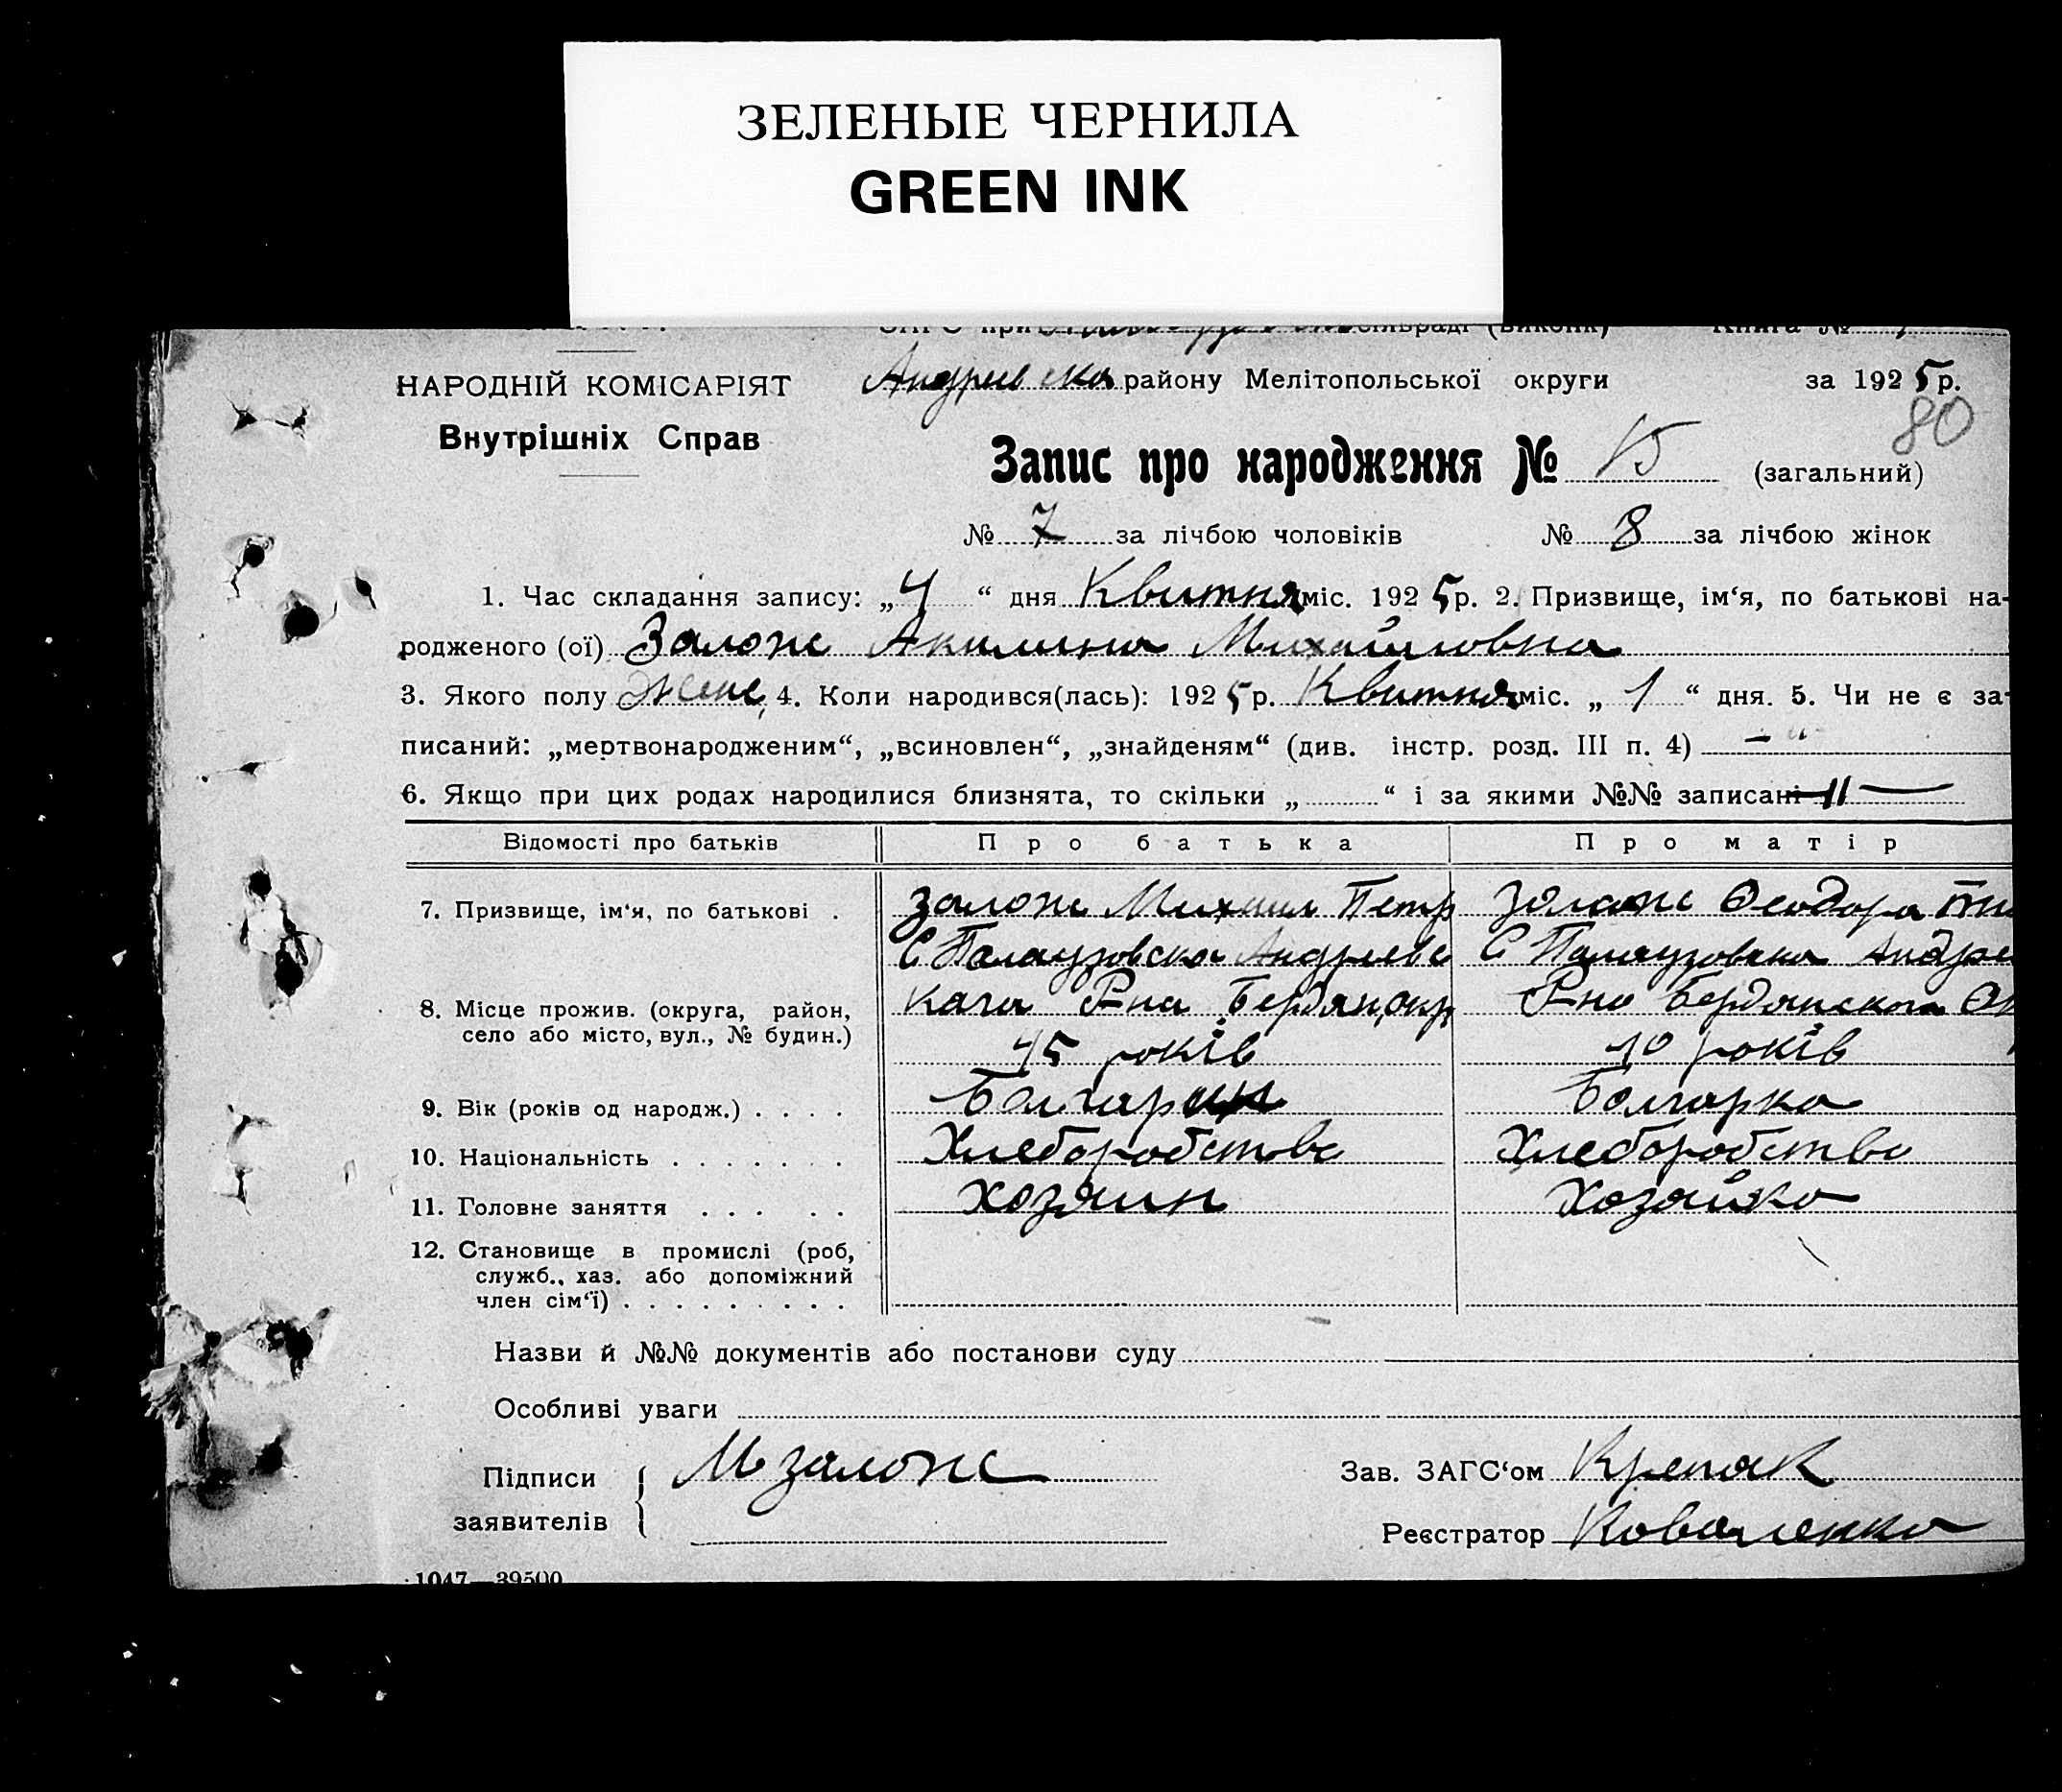 ЗЕЛЕНЫЕ ЧЕРНИЛА
GREEN INK
ЗАГС при сільраді (виконк) Книга №
НАРОДНІЙ КОМІСАРІЯТ
Внутрішніх Справ
Андреевско району Мелітопольської округи за 1925 р.
80
Запис про народження № 15 (загальний)
№ 7 за лічбою чоловіків № 8 за лічбою жінок
1. Час складання запису: „4“ дня Квитня міс. 1925 р. 2. Призвище, ім‘я, по батькові на-
родженого (ої) Залож Акилина Михайловна
3. Якого полу Жене, 4. Коли народився(лась): 1925 р. Квитня міс. „1“ дня. 5. Чи не є за-
писаний: „мертвонародженим“, „всиновлен“, „знайденям“ (див. інстр. розд. III п. 4) — "
6. Якщо при цих родах народилися близнята, то скільки „ “ і за якими №№ записані —II—
Відомості про батьків Про батька Про матір
7. Призвище, ім‘я, по батькові . Залож Михаил Петр Залож Феодора
С Палаузовска Андреевс С Палаузовска Андре
8. Місце прожив. (округа, район, кага Р-на Бердян, окр, Р-на Бердянскога Ок
село або місто, вул., № будин.) 45 років 40 років
9. Вік (років од народж.) . . . . Болгарин Болгарка
10. Національність . . . . . . . Хлеборобство Хлеборобство
11. Головне заняття . . . . . Хозяин Хозяйка
12. Становище в промислі (роб,
служб., хаз. або допоміжний
член сім‘ї) . . . . . . . . .
Назви й №№ документів або постанови суду
Особливі уваги
Підписи М Залож Зав. ЗАГС‘ом Крепак
заявителів Реєстратор Коваленко
1047—39500